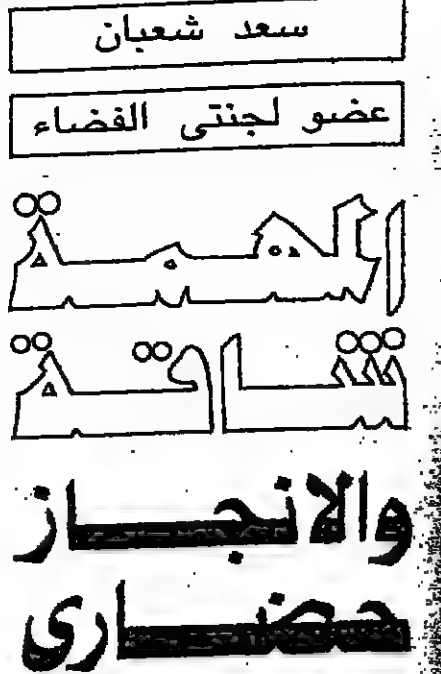 سعد شعبان
عضو لجنتى الفضاء
المهمة
شاقة
والانجاز
حضارى